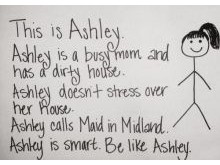 This is Ashley.
Ashley is a busy mom and
has a dirty house.
Ashley doesn't stress over
her house.
Ashley calls Maid in Midland.
Ashley is smart. Be like Ashley.